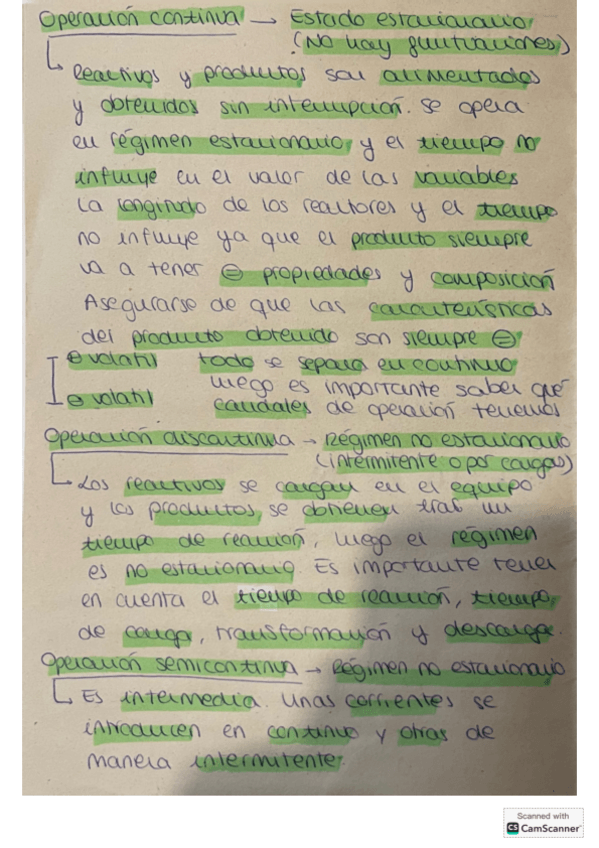 Operación continua → Estado estacionario
(No hay fluctuaciones)
Reactivos y productos son alimentados
y obtenidos sin interrupción. Se opera
en régimen estacionario y el tiempo no
influye en el valor de las variables
La longitud de los reactores y el tiempo
no influye ya que el producto siempre
va a tener ⊖ propiedades y composición
Asegurarse de que las características
del producto obtenido son siempre ⊖
⊕ volatil todo se separa en continuo
luego es importante saber qué
volatil caudales de operación tenemos
Operación discontinua → Régimen no estacionario
(intermitente o por cargas)
Los reactivos se cargan en el equipo
y los productos, se obtienen tras un
tiempo de reacción, luego el régimen
es no estacionario. Es importante tener
en cuenta el tiempo de reacción, tiempo
de carga, transformación y descarga.
Operación semicontinua → Régimen no estacionario
Es intermedia. Unas corrientes se
introducen en continuo y otras de
manera intermitente.
Scanned with
CS CamScanner